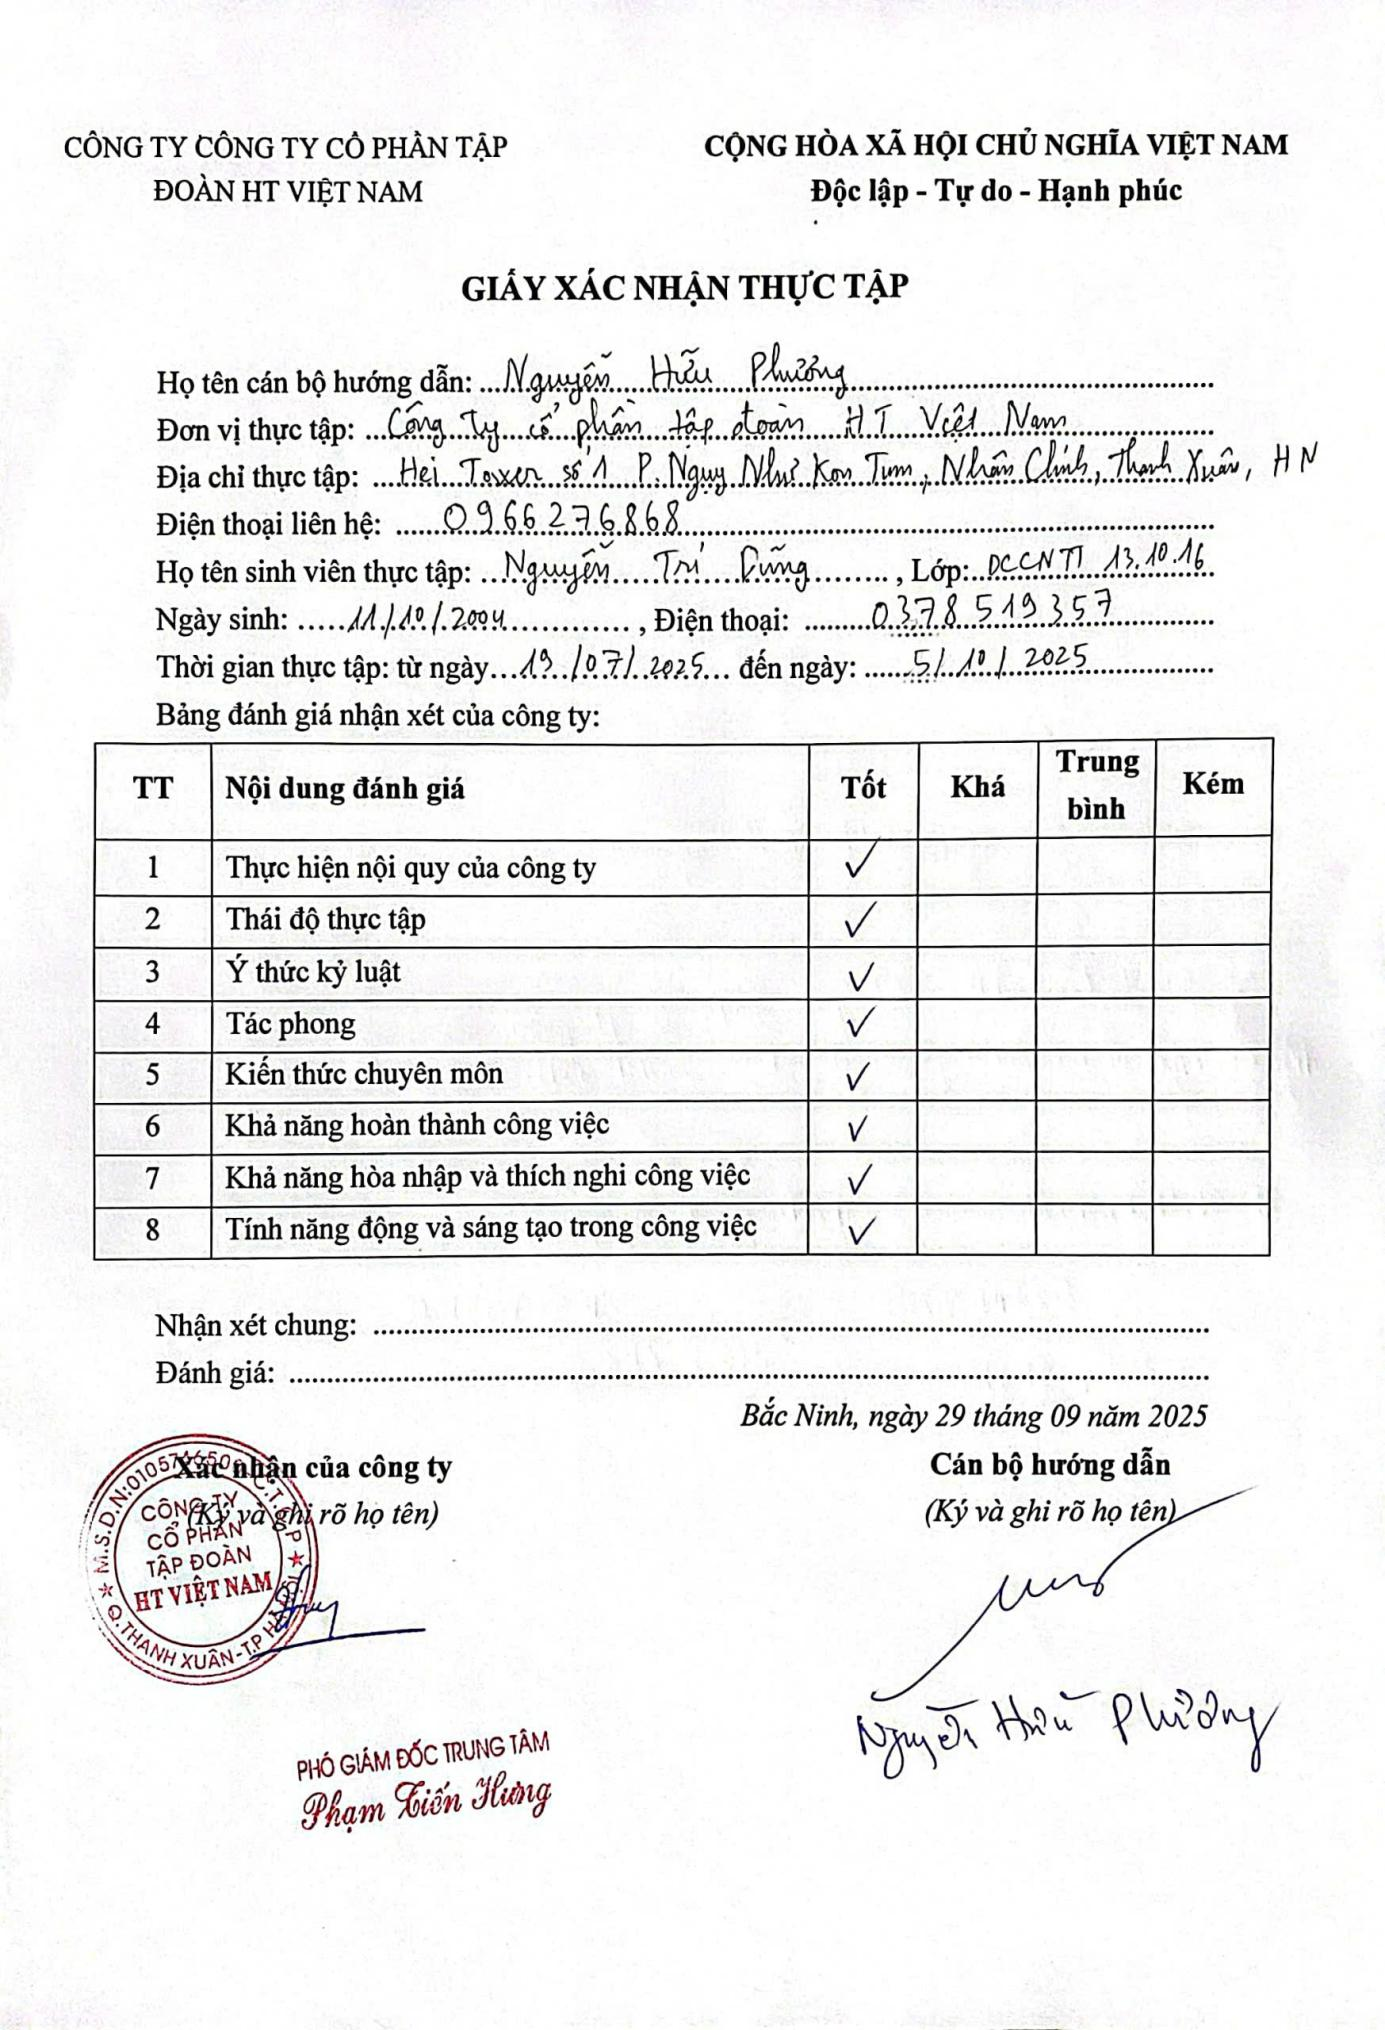 CÔNG TY CÔNG TY CỔ PHẦN TẬP
ĐOÀN HT VIỆT NAM
CỘNG HÒA XÃ HỘI CHỦ NGHĨA VIỆT NAM
Độc lập - Tự do - Hạnh phúc
GIẤY XÁC NHẬN THỰC TẬP
Họ tên cán bộ hướng dẫn: Nguyễn Hữu Phương
Đơn vị thực tập: Công Ty cổ phần tập đoàn HT Việt Nam
Địa chỉ thực tập: Hei Tower số 1 P. Ngụy Như Kon Tum, Nhân Chính, Thanh Xuân, HN
Điện thoại liên hệ: 0966276868
Họ tên sinh viên thực tập: Nguyễn Trí Dũng, Lớp: DCCNTT 13.10.16
Ngày sinh: 11/10/2004, Điện thoại: 0378519357
Thời gian thực tập: từ ngày 19/07/2025 đến ngày: 5/10/2025
Bảng đánh giá nhận xét của công ty:
TT Nội dung đánh giá Tốt Khá Trung bình Kém
1 Thực hiện nội quy của công ty ✓
2 Thái độ thực tập ✓
3 Ý thức kỷ luật ✓
4 Tác phong ✓
5 Kiến thức chuyên môn ✓
6 Khả năng hoàn thành công việc ✓
7 Khả năng hòa nhập và thích nghi công việc ✓
8 Tính năng động và sáng tạo trong công việc ✓
Nhận xét chung:
Đánh giá:
Bắc Ninh, ngày 29 tháng 09 năm 2025
Xác nhận của công ty
(Ký và ghi rõ họ tên)
Cán bộ hướng dẫn
(Ký và ghi rõ họ tên)
CÔNG TY
CỔ PHẦN
TẬP ĐOÀN
HT VIỆT NAM
Q.THANH XUÂN-T.P
Nguyễn Hữu Phương
PHÓ GIÁM ĐỐC TRUNG TÂM
Phạm Tiến Hưng